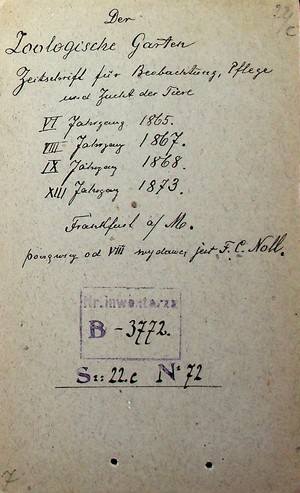 Der
22/c
Zoologische Garten
Zeitschrift für Beobachtung, Pflege
und Zucht der Tiere
VI Jahrgang 1865.
VIII Jahrgang 1867.
IX Jahrgang 1868.
XIII Jahrgang 1873.
Frankfurt a/M.
począwszy od VIII wydawcą jest F. C. Noll.
Nr. inwentarza
B - 3772.
S:: 22.c Nº 72
7